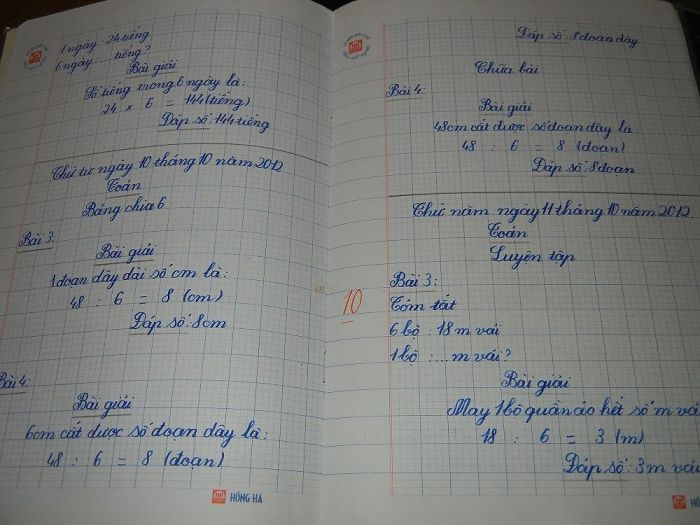 1 ngày 24 tiếng
6 ngày ... tiếng?
Bài giải
Số tiếng trong 6 ngày là:
24 × 6 = 144 (tiếng)
Đáp số: 144 tiếng
Thứ tư ngày 10 tháng 10 năm 2012
Toán
Bảng chia 6
Bài 3:
Bài giải
1 đoạn dây dài số cm là:
48 : 6 = 8 (cm)
Đáp số: 8cm
Bài 4:
Bài giải
6cm cắt được số đoạn dây là:
48 : 6 = 8 (đoạn)
HỒNG HÀ
Đáp số: 8 đoạn dây
Chữa bài
Bài 4:
Bài giải
48cm cắt được số đoạn dây là
48 : 6 = 8 (đoạn)
Đáp số: 8 đoạn
Thứ năm ngày 11 tháng 10 năm 2012.
Toán
Luyện tập
10
Bài 3:
Tóm tắt
6 bộ : 18 m vải
1 bộ : ... m vải?
Bài giải
May 1 bộ quần áo hết số m vả
18 : 6 = 3 (m)
Đáp số: 3 m vải